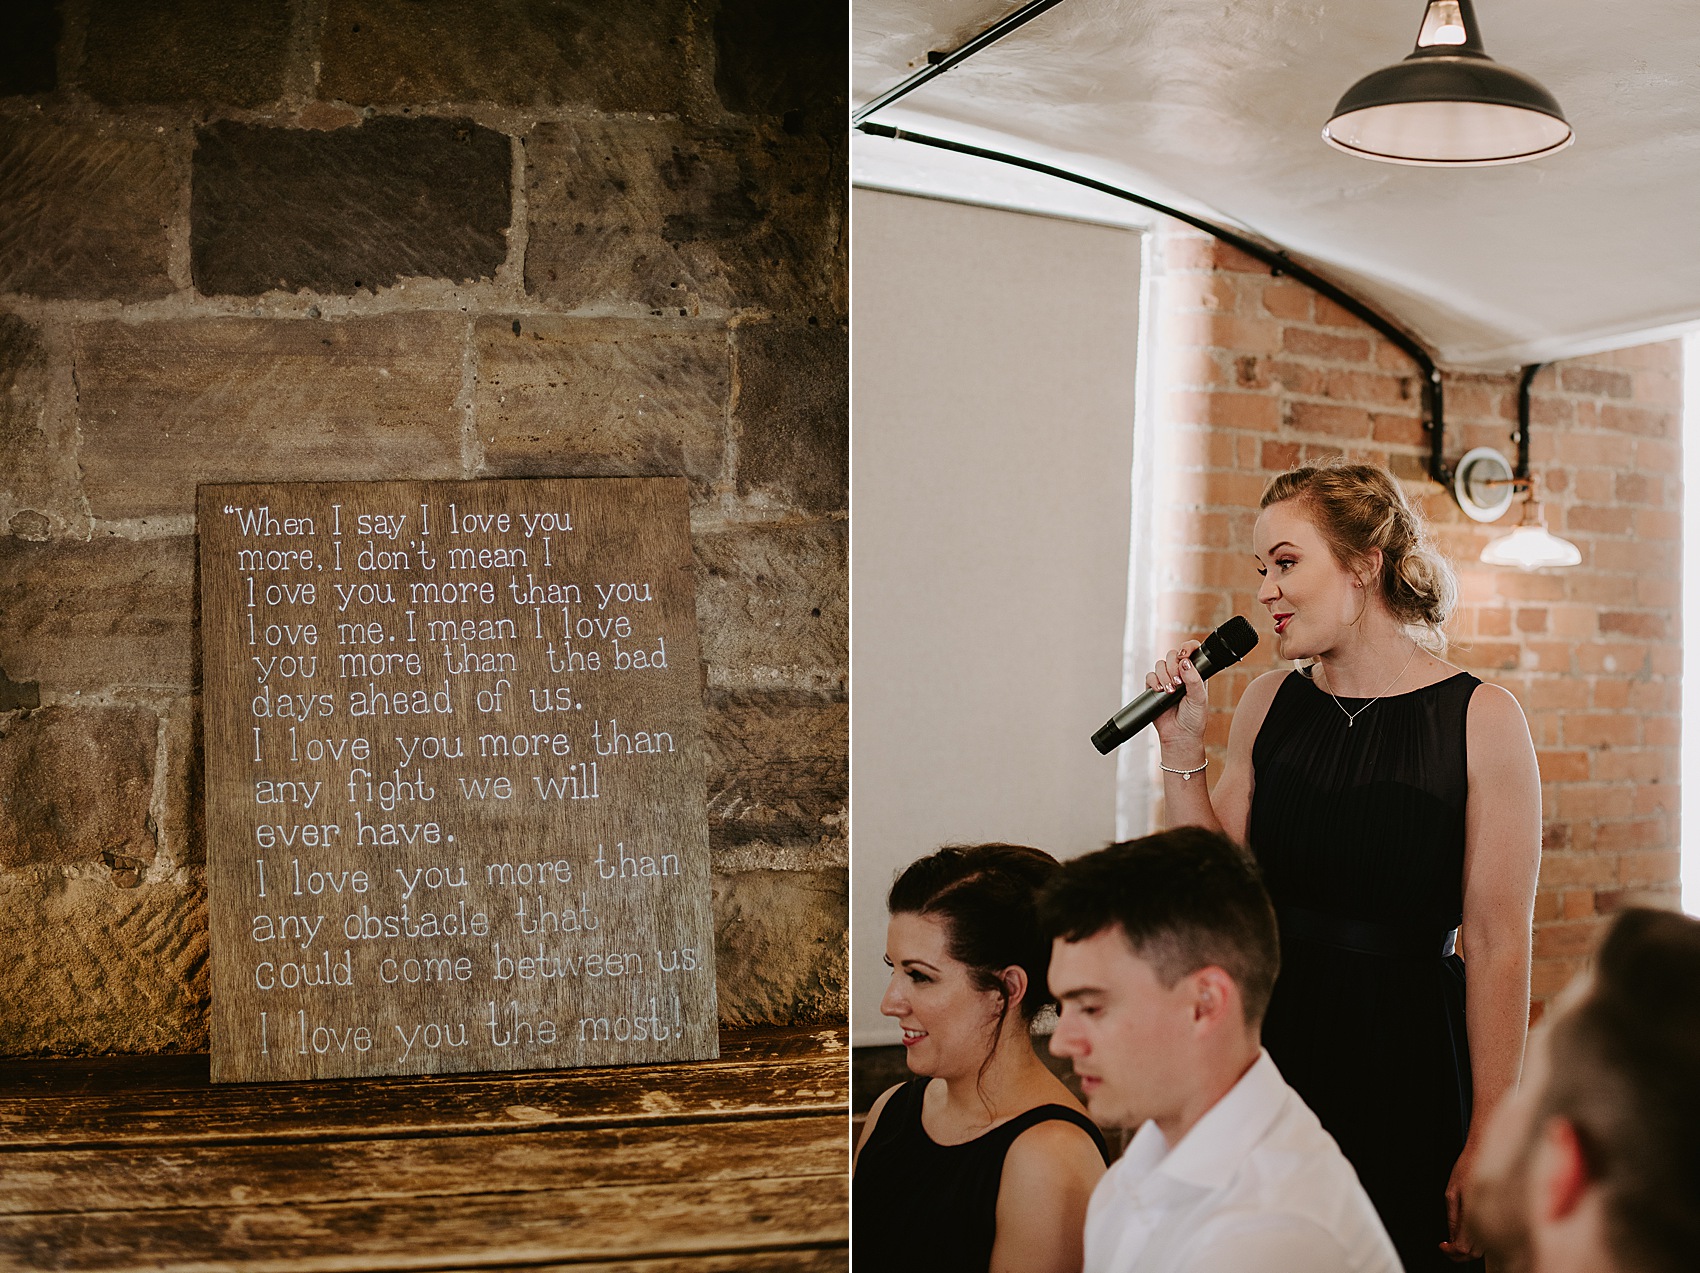 “When I say I love you
more, I don't mean I
love you more than you
love me. I mean I love
you more than the bad
days ahead of us.
I love you more than
any fight we will
ever have.
I love you more than
any obstacle that
could come between us.
I love you the most!